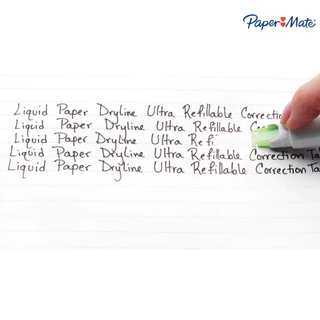 Paper Mate
Liquid Paper Dryline Ultra Refillable Correction
Liquid Paper Dryline Ultra Refillable Co
Liquid Paper Dryline Ultra Refi
Liquid Paper Dryline Ultra Refillable Correction Ta
Liquid Paper Dryline Ultra Refillable Correction Ta